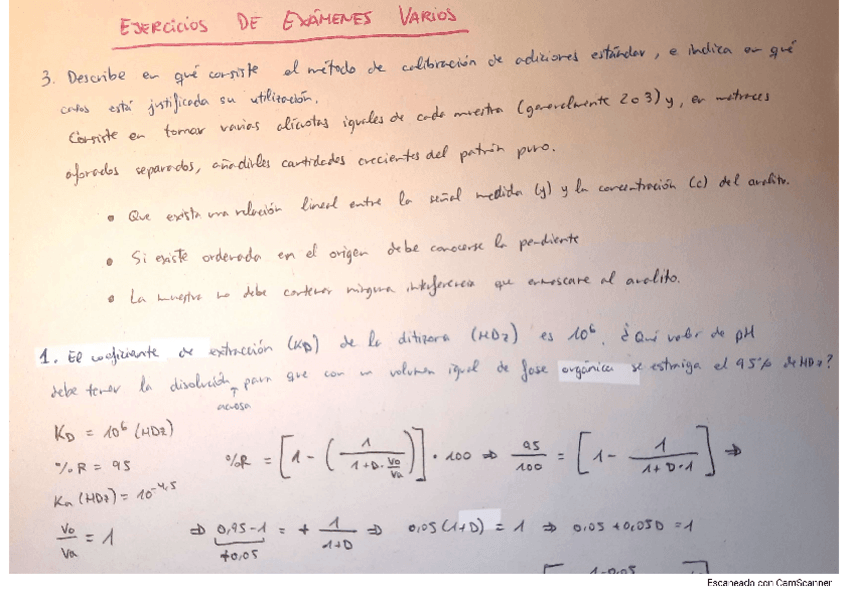 EJERCICIOS DE EXÁMENES VARIOS
3. Describe en qué consiste el método de calibración de adiciones estándar, e indica en qué
casos está justificada su utilización.
Consiste en tomar varias alícuotas iguales de cada muestra (generalmente 2 o 3) y, en matraces
aforados separados, añadirles cantidades crecientes del patrón puro.
• Que exista una relación lineal entre la señal medida (y) y la concentración (c) del analito.
• Si existe ordenada en el origen debe conocerse la pendiente
• La muestra no debe contener ninguna interferencia que enmascare al analito.
1. El coeficiente de extracción (KD) de la ditizona (HDz) es 10⁶. ¿Qué valor de pH
debe tener la disolución para que con un volumen igual de fase orgánica se extraiga el 95% de HDz?
↑
acuosa
KD = 10⁶ (HDz)
%R = [1 - (1 / (1 + D · Vo/Va))] · 100 ⇒ 95/100 = [1 - 1 / (1 + D · 1)] ⇒
%R = 95
Ka (HDz) = 10^-4,5
Vo/Va = 1
⇒ 0,95 - 1 = + 1 / (1 + D) ⇒ 0,05 (1 + D) = 1 ⇒ 0,05 + 0,05D = 1
+0,05
1 - 0,05
Escaneado con CamScanner